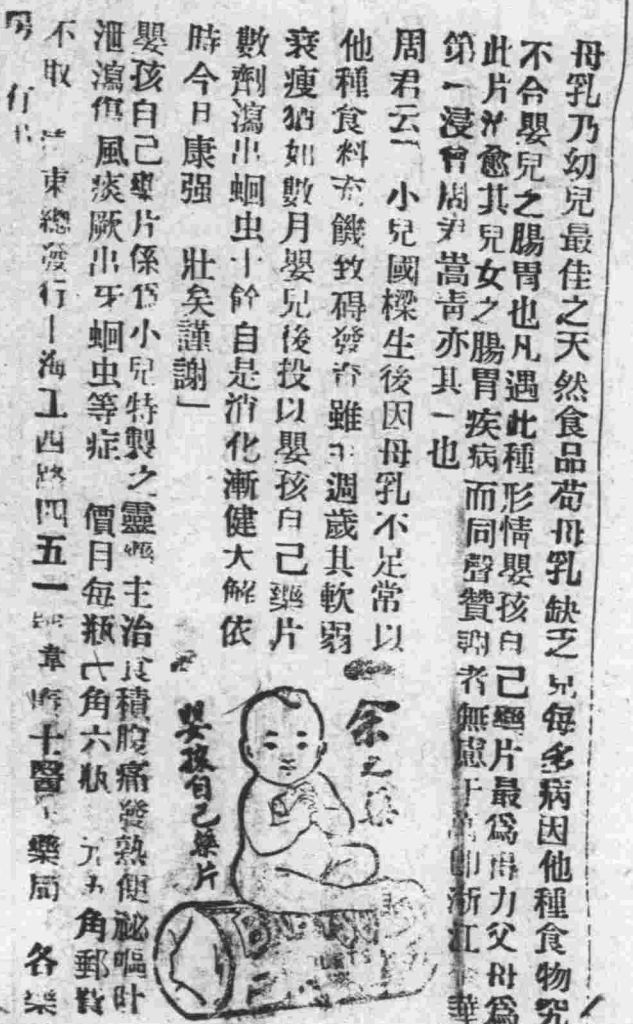 母乳乃幼兒最佳之天然食品苟母乳缺乏兒每多病因他種食物究
不合嬰兒之腸胃也凡遇此種形情嬰孩自己藥片最爲得力父母爲
此片治愈其兒女之腸胃疾病而同聲贊謝者無慮千萬即浙江 華
第一浸會周尹嵩靑亦其一也
周君云「小兒國樑生後因母乳不足常以
他種食料充饑致碍發育雖 週歲其軟弱
衰瘦猶如數月嬰兒後投以嬰孩自己藥片
數劑瀉出蛔虫十餘自是消化漸健大解依
時今日康强 壯矣謹謝」
嬰孩自己藥片係爲小兒特製之靈藥主治食積腹痛發熱便祕嘔吐
泄瀉傷風痰厥出牙蛔虫等症 價目每瓶六角六瓶 元五角郵費
不取 東總發行 海江西路四五一號韋廉士醫 藥局 各藥
房 有
余之藥
嬰孩自己藥片